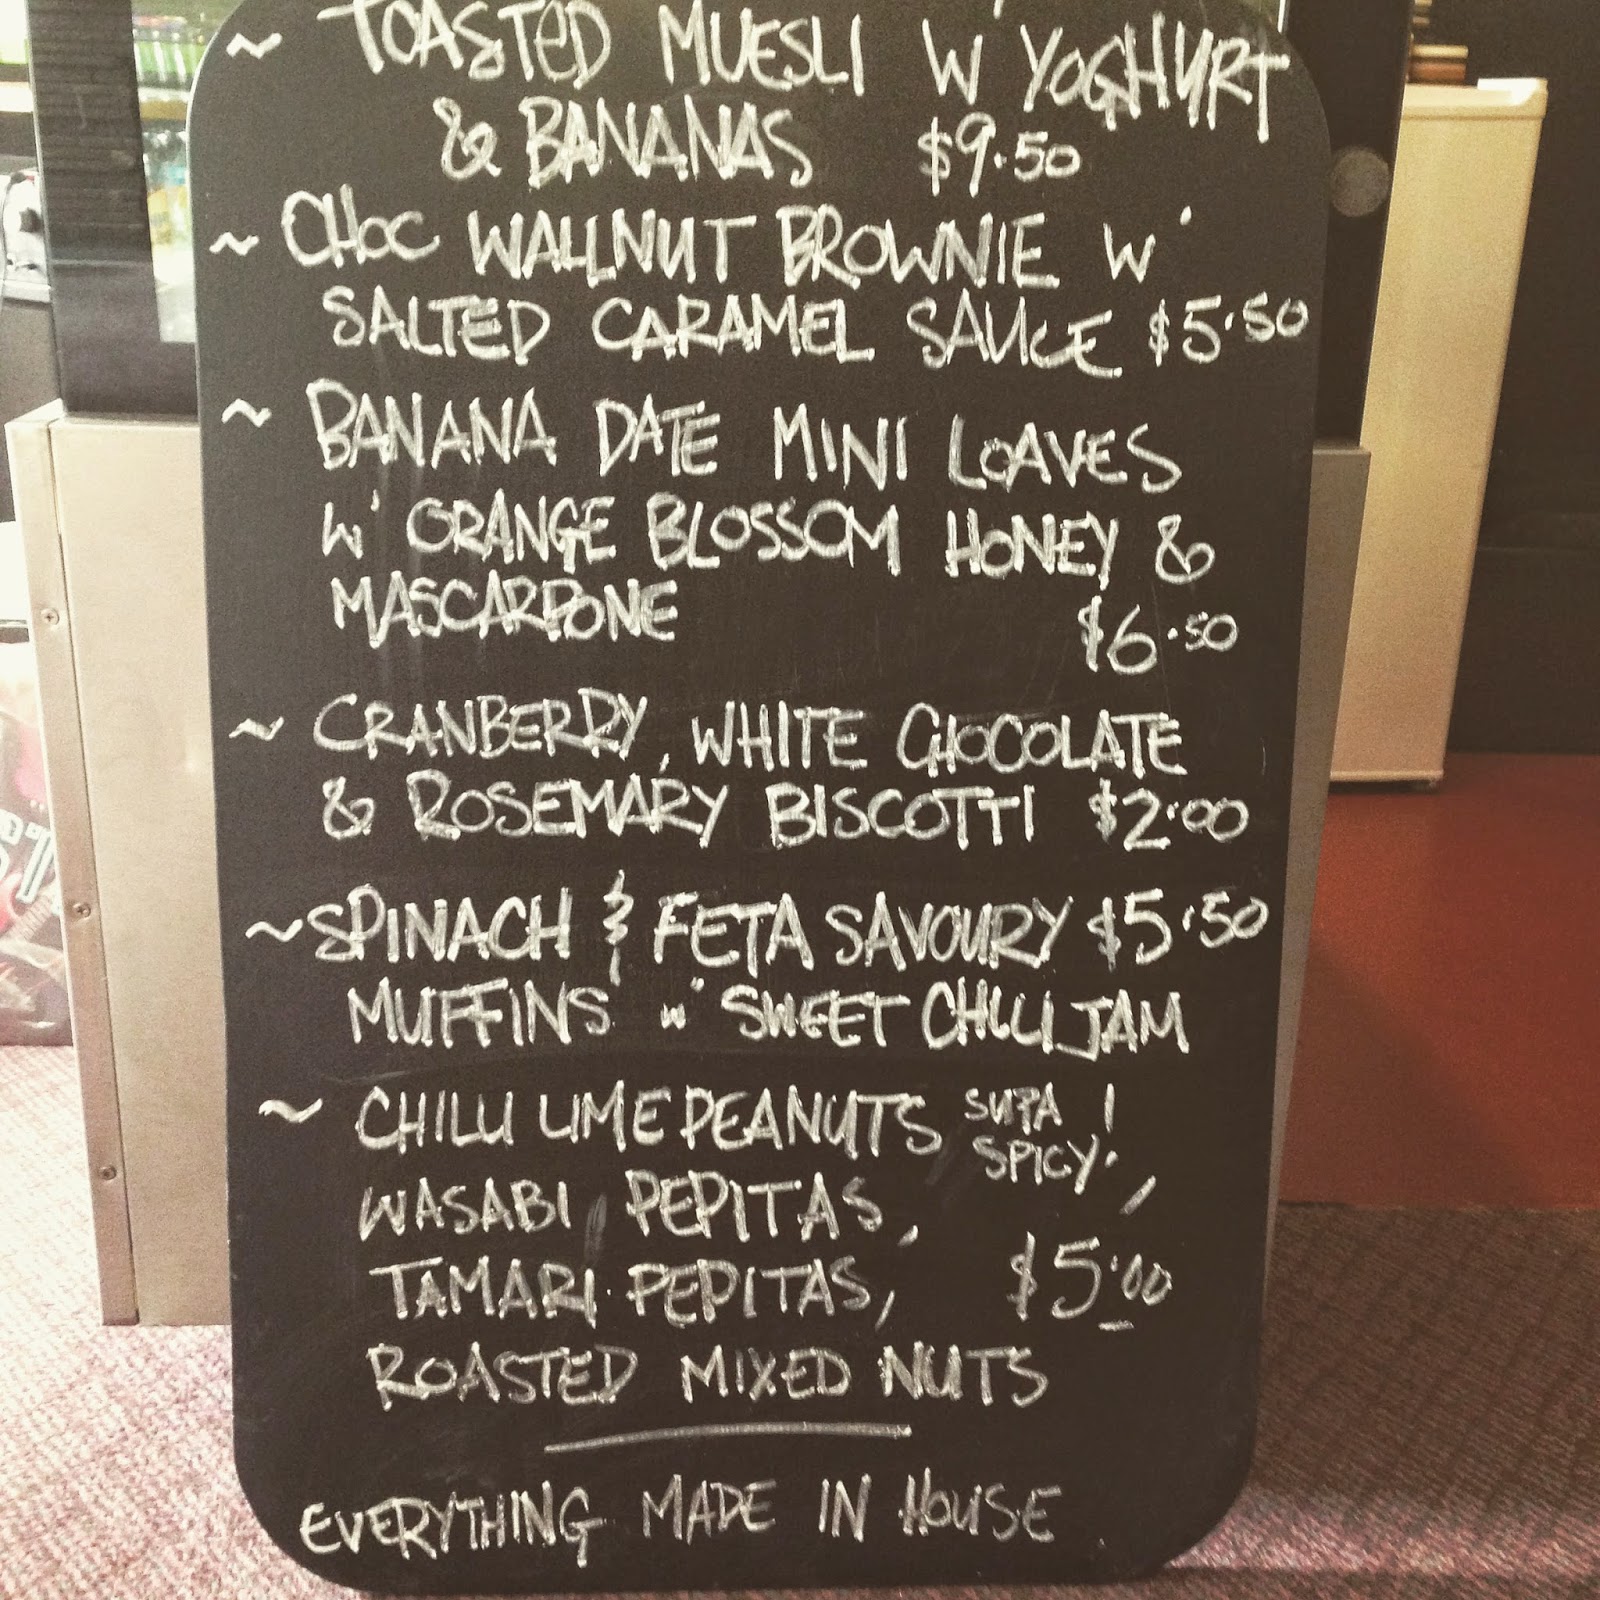 ~ TOASTED MUESLI W' YOGHURT
& BANANAS $9.50
~ CHOC WALLNUT BROWNIE W'
SALTED CARAMEL SAUCE $5.50
~ BANANA DATE MINI LOAVES
W' ORANGE BLOSSOM HONEY &
MASCARPONE $6.50
~ CRANBERRY, WHITE CHOCOLATE
& ROSEMARY BISCOTTI $2.00
~ SPINACH & FETA SAVOURY $5.50
MUFFINS W' SWEET CHILLI JAM
~ CHILLI LIME PEANUTS SUPA SPICY!,
WASABI PEPITAS,
TAMARI PEPITAS, $5.00
ROASTED MIXED NUTS
EVERYTHING MADE IN HOUSE